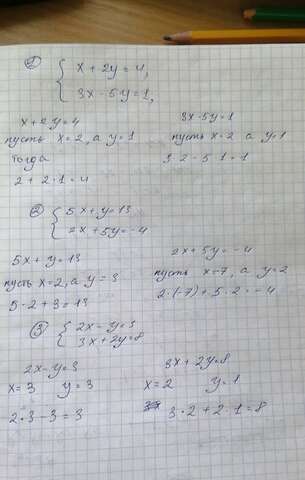 1) { x + 2y = 4,
3x - 5y = 1,
x + 2y = 4
пусть x = 2, а y = 1
тогда
2 + 2·1 = 4
3x - 5y = 1
пусть x = 2 а y = 1
3·2 - 5·1 = 1
2) { 5x + y = 13
2x + 5y = -4
5x + y = 13
пусть x = 2, а y = 3
5·2 + 3 = 13
2x + 5y = -4
пусть x = -7, а y = 2
2·(-7) + 5·2 = -4
3) { 2x - y = 3
3x + 2y = 8
2x - y = 3
x = 3 y = 3
2·3 - 3 = 3
3x + 2y = 8
x = 2 y = 1
3·2 + 2·1 = 8